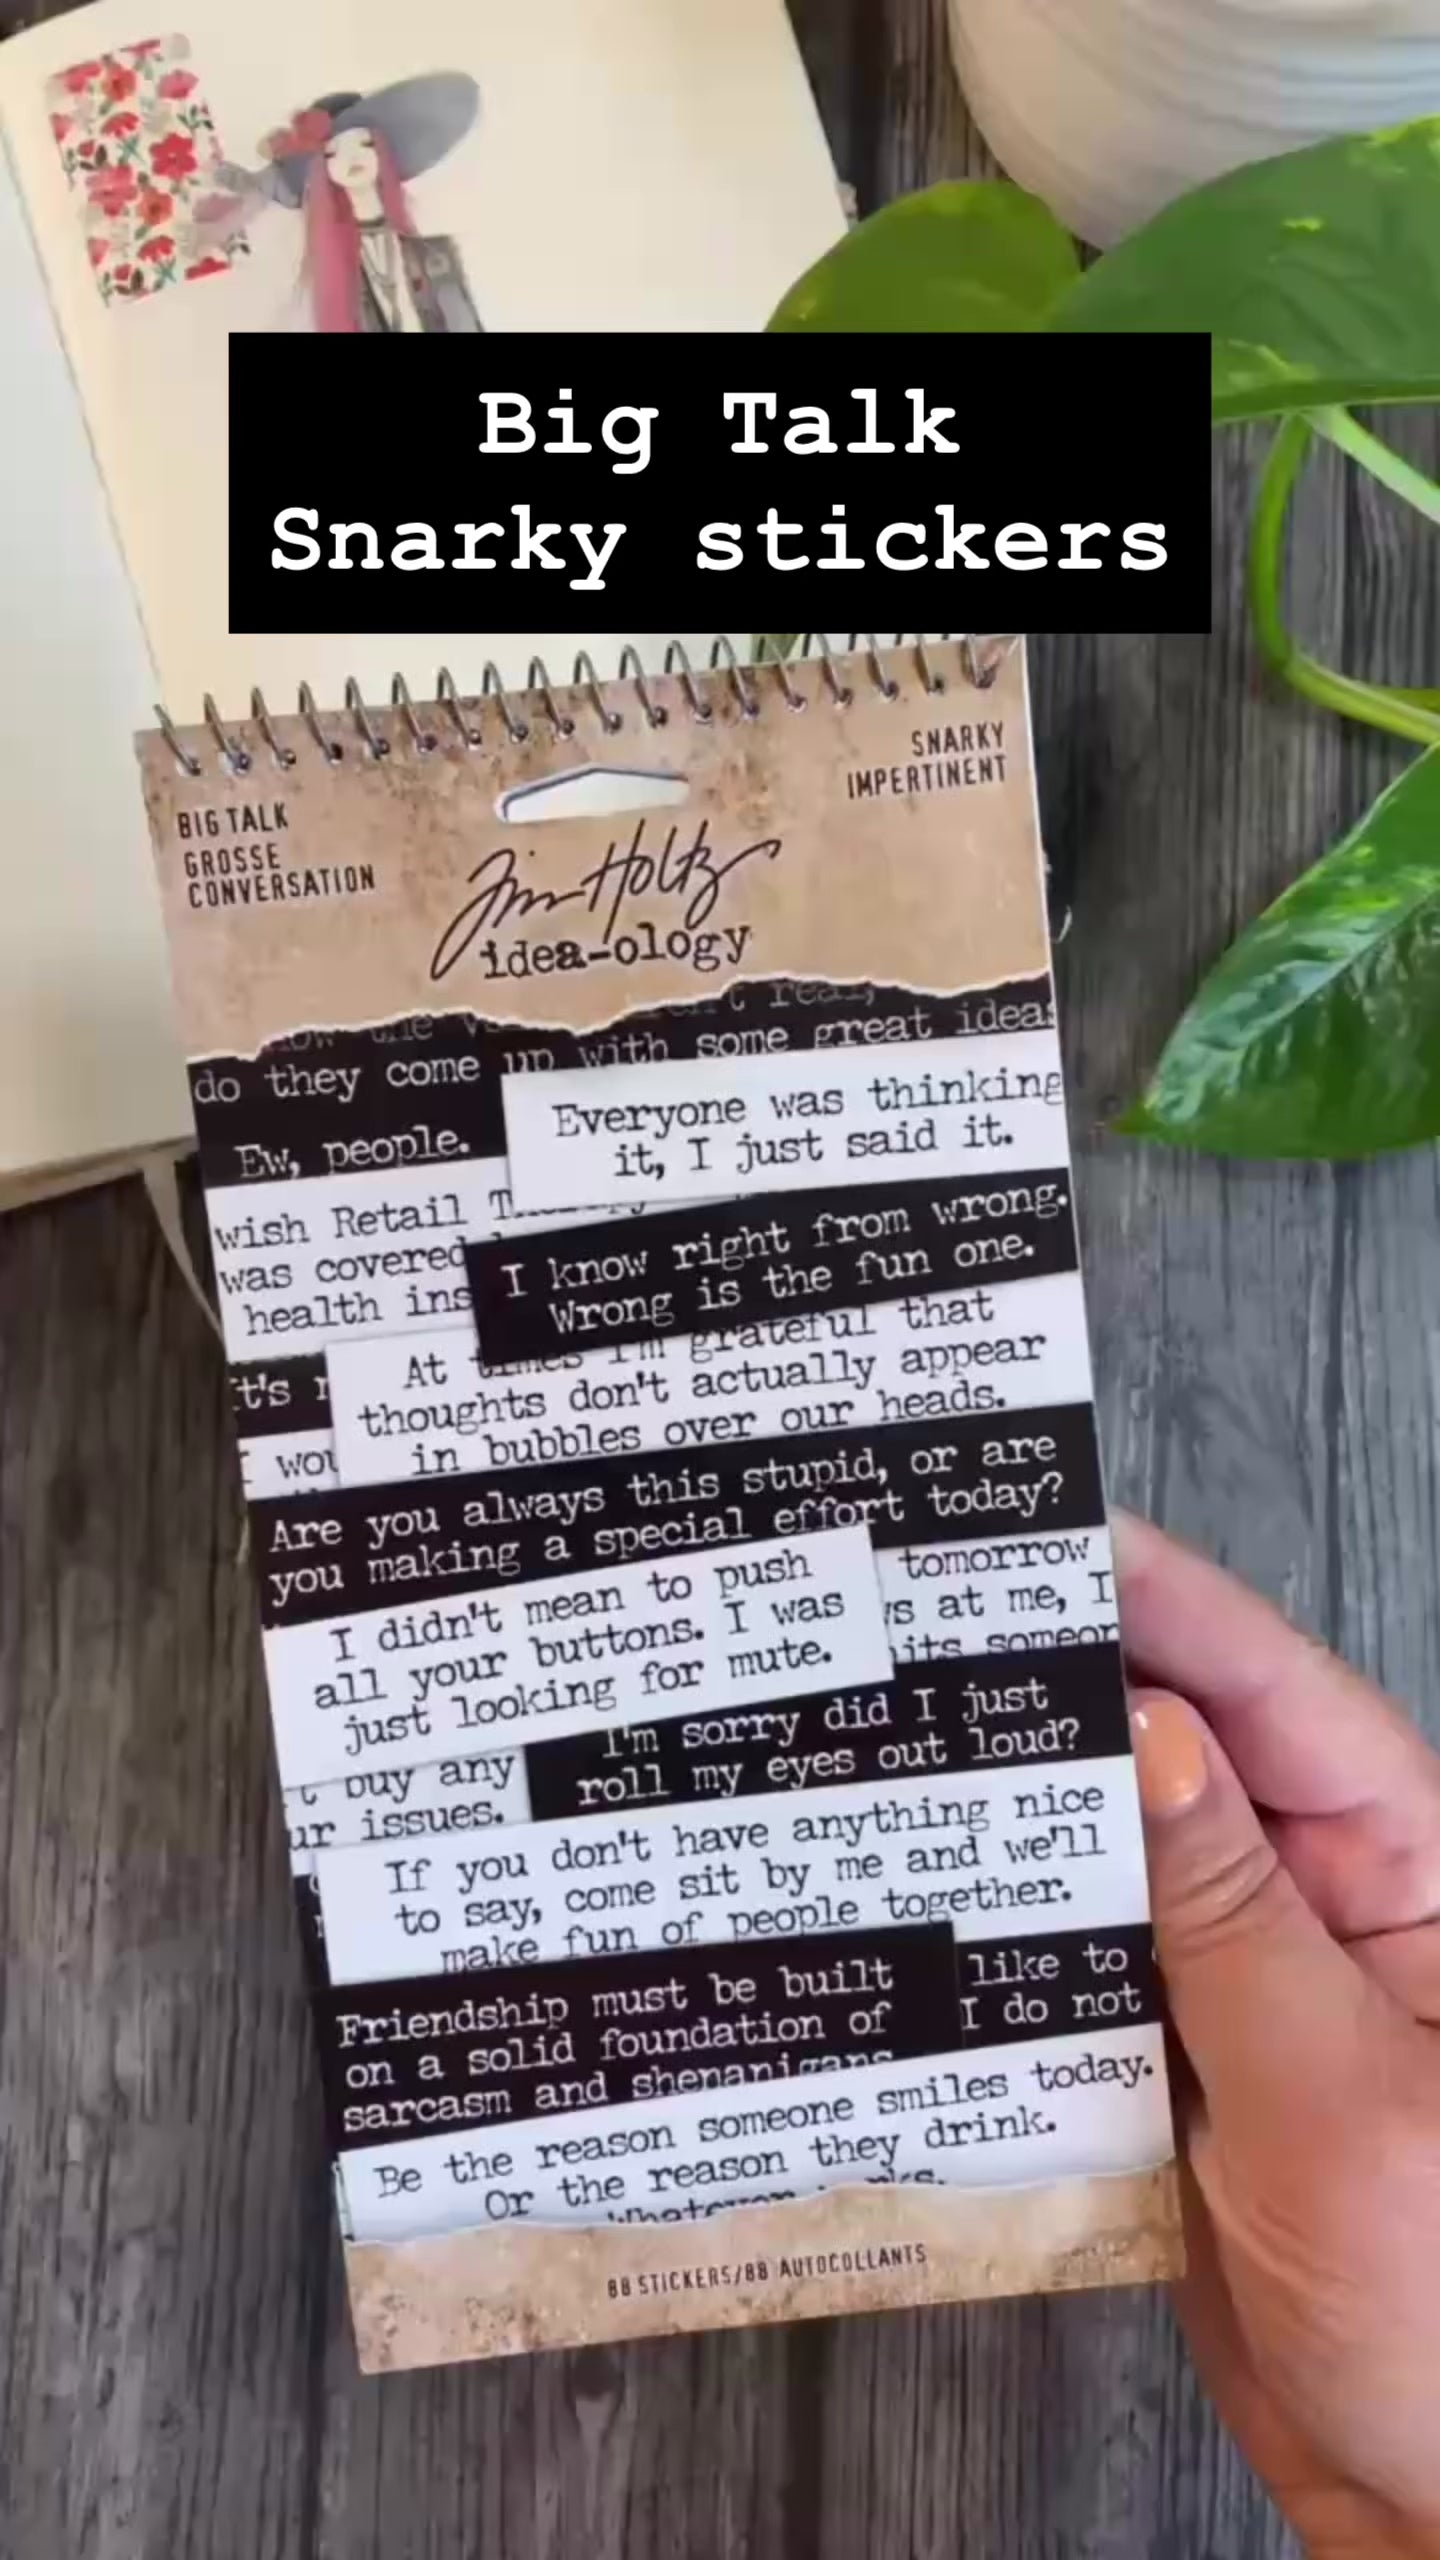 Big Talk
Snarky stickers
BIG TALK
GROSSE
CONVERSATION
SNARKY
IMPERTINENT
Tim Holtz
idea-ology
do they come up with some great ideas
Ew, people.
Everyone was thinking
it, I just said it.
wish Retail
was covered
health ins
I know right from wrong.
Wrong is the fun one.
It's
At times I'm grateful that
thoughts don't actually appear
in bubbles over our heads.
I wou
Are you always this stupid, or are
you making a special effort today?
I didn't mean to push
all your buttons. I was
just looking for mute.
tomorrow
ws at me, I
someon
I'm sorry did I just
roll my eyes out loud?
t buy any
ur issues.
If you don't have anything nice
to say, come sit by me and we'll
make fun of people together.
Friendship must be built
on a solid foundation of
sarcasm and shenanigans
like to
I do not
Be the reason someone smiles today.
Or the reason they drink.
Whatever
88 STICKERS/88 AUTOCOLLANTS